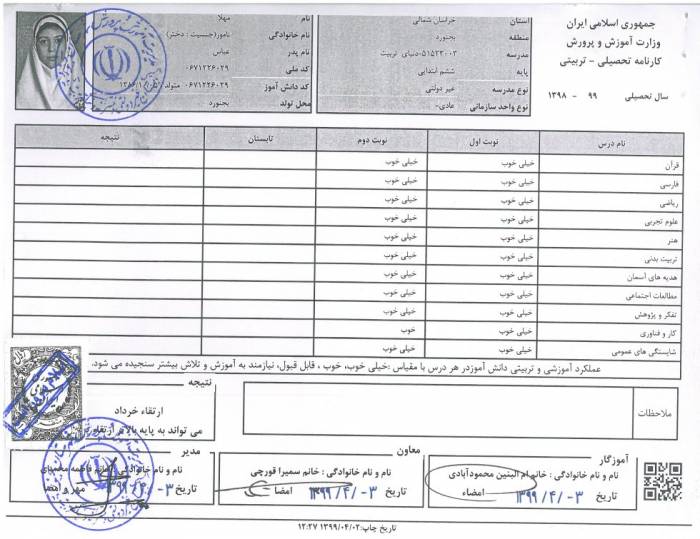 جمهوری اسلامی ایران
وزارت آموزش و پرورش
کارنامه تحصیلی - تربیتی
سال تحصیلی ۹۹ - ۱۳۹۸
استان خراسان شمالی
منطقه بجنورد
مدرسه ۵۱۵۲۲۰۰۳-دنیای تربیت
پایه ششم ابتدایی
نوع مدرسه غیر دولتی
نوع واحد سازمانی عادی-
نام مهلا
نام خانوادگی نامور(جنسیت : دختر)
نام پدر عباس
کد ملی ۰۶۷۱۲۲۶۰۲۹
کد دانش آموز ۰۶۷۱۲۲۶۰۲۹ متولد
محل تولد بجنورد
نام درس نوبت اول نوبت دوم تابستان نتیجه
قرآن خیلی خوب خیلی خوب
فارسی خیلی خوب خیلی خوب
ریاضی خیلی خوب خیلی خوب
علوم تجربی خیلی خوب خیلی خوب
هنر خیلی خوب خیلی خوب
تربیت بدنی خیلی خوب خیلی خوب
هدیه های آسمان خیلی خوب خیلی خوب
مطالعات اجتماعی خیلی خوب خیلی خوب
تفکر و پژوهش خیلی خوب خیلی خوب
کار و فناوری خیلی خوب خوب
شایستگی های عمومی خیلی خوب خیلی خوب
عملکرد آموزشی و تربیتی دانش آموزدر هر درس با مقیاس :خیلی خوب، خوب ، قابل قبول، نیازمند به آموزش و تلاش بیشتر سنجیده می شود.
ملاحظات
نتیجه
ارتقاء خرداد
می تواند به پایه بالاتر ارتقاء
آموزگار
نام و نام خانوادگی : خانم ام البنین محمودآبادی
تاریخ ۱۳۹۹/۴/-۳ امضاء
معاون
نام و نام خانوادگی : خانم سمیرا قورچی
تاریخ ۱۳۹۹/۴/-۳ امضاء
مدیر
نام و نام خانوادگی : خانم فاطمه محمدی
تاریخ ۱۳۹۹/۴/-۳ مهر و امضا
تاریخ چاپ:۱۳۹۹/۰۴/۰۲ ۱۲:۲۷